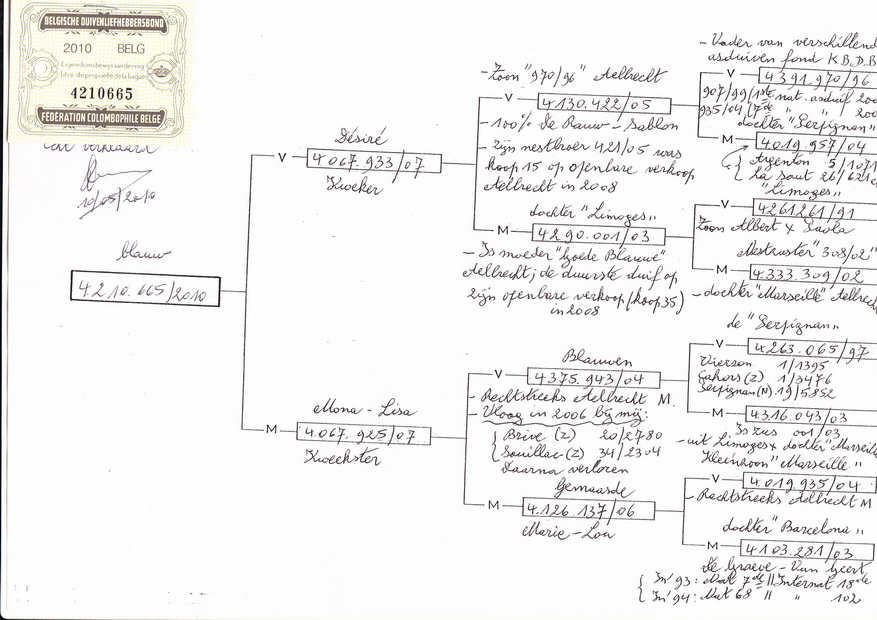 BELGISCHE DUIVENLIEFHEBBERSBOND
2010 BELG
Eigendomsbewijs van de ring
titre de propriété de la bague
4210665
FEDERATION COLOMBOPHILE BELGE
10/05/2010
blauw
4210.665/2010
Désiré
V
4.067.933/07
Kweker
Mona-Lisa
M
4.067.925/07
Kweekster
- Zoon "970/96" Aelbrecht
V
4130.422/05
- 100% De Rauw-Sablon
- Zijn nestbroer 421/05 was
koop 15 op openbare verkoop
Aelbrecht in 2008
dochter "Limoges"
M
4290.001/03
- Is moeder "Goede Blauwe"
Aelbrecht; de duurste duif op
zijn openbare verkoop (koop 35)
in 2008
Blauwen
V
4375.943/04
- Rechtstreeks Aelbrecht M.
- Vloog in 2006 bij mij:
Brive (Z) 20/2780
Souillac (Z) 34/2304
Daarna verloren
Gemaasde
M
4.126.137/06
Marie-Lou
- Vader van verschillend
asduiven fond K.B.D.B
V
4391.970/96
907/99 (1ste nat. asduif 200
935/04 (7de " " 200
dochter "Perpignan"
M
4019.957/04
Argenton 5/1071
La Sout 26/621
"Limoges"
V
4261261/91
Zoon Albert x Paola
"308/02"
M
4.333.309/02
- dochter "Marseille" Aelbrec
de "Perpignan"
V
4.263.065/97
Vierzon 1/1395
Cahors (Z) 1/3476
Perpignan (N) 19/5852
M
4.316.043/03
Is zus 001/03
- uit Limoges x dochter "Marseille
Kleinzoon "Marseille"
V
4.019.935/04
- Rechtstreeks Aelbrecht M
dochter "Barcelona"
M
4103.281/03
De Graeve - Van Geert
In '93: Nat 7de // Internat 18de
In '94: Nat 68 // " 102